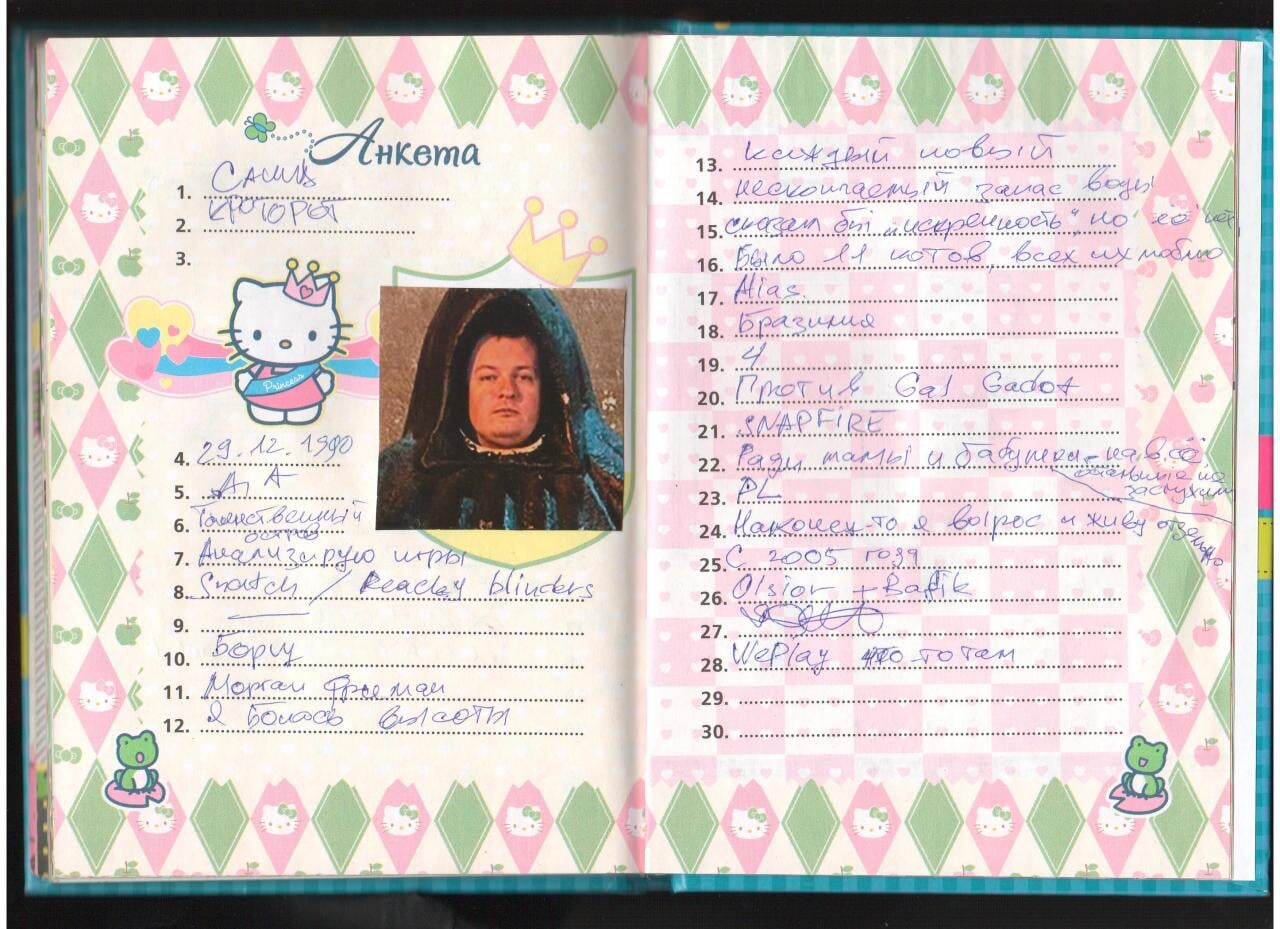 Анкета
1. Саниц
2. КРОТОРОТ
3.
Princess
4. 29.12.1990
5. А А
6. Таинственный
остров
7. Анализирую игры
8. Snatch / Peacky blinders
9.
10. Борщ
11. Морган Фриман
12. Я боюсь высоты
13. каждый новый
14. нескончаемый запас воды
15. сказал бы "искренность", но её нет
16. Было 11 котов, всех их люблю
17. Alias.
18. Бразилия
19. 4
20. Против Gal Gadot
21. SNAPFIRE
22. Ради мамы и бабушки - на всё
остальные не
заслужили
23. PL
24. Наконец-то я вырос и живу отдельно
25. С 2005 года
26. Olsior + Rafik
27.
28. WePlay что-то там
29.
30.